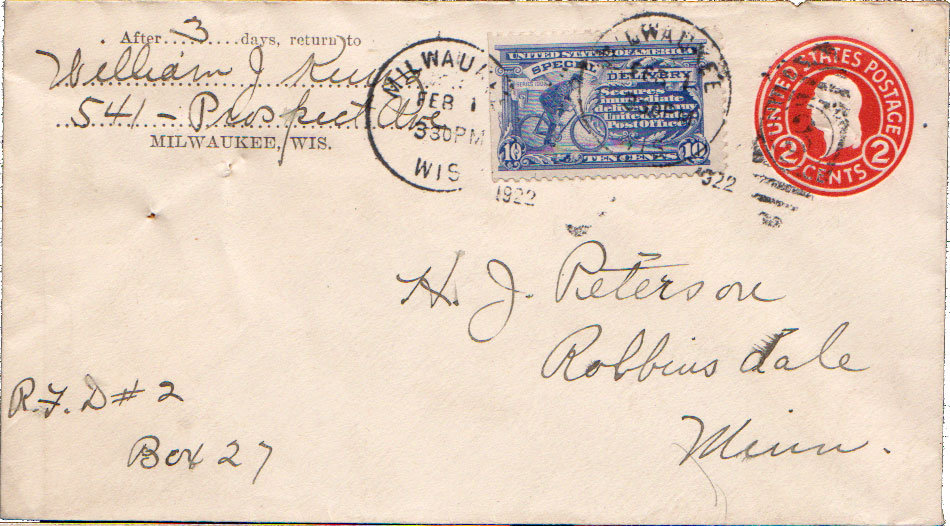 After 3 days, return to
William J.
541 - Prospect Ave
MILWAUKEE, WIS.
MILWAUKEE
FEB 1
330 PM
WIS
1922
UNITED STATES OF AMERICA
SPECIAL DELIVERY
Secures
immediate
delivery at any
United States
Post Office
10 TEN CENTS 10
MILWAUKEE
1922
UNITED STATES POSTAGE
2 CENTS 2
H. J. Peterson
Robbinsdale
Minn.
R.F.D # 2
Box 27